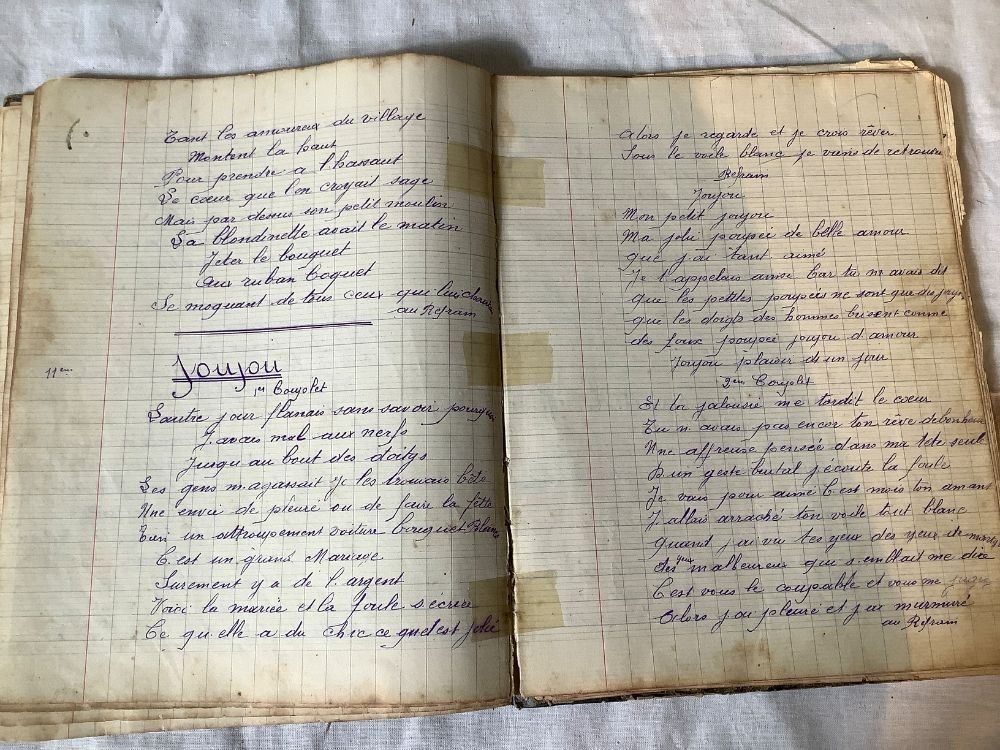 Tant les amoureux du village
Montent la haut
Pour prendre a l'hassaut
Le cœur que l'on croyait sage
Mais par dessus son petit moulin
La blondinette avait le matin
Jeter le bouquet
Aux ruban Coquet
Se moquant de tous ceux que
au Refrain
11em
Joujou
1er Couplet
L'autre jour flanais sans savoir pourquoi
J'avais mal aux nerfs
Jusqu'au bout des doitgs
Les gens m'agassait je les trouvais bête
Une envie de pleuré ou de faire la fête
un attroupement voiture bouquet Blanc
C'est un grand Mariage
Surement y a de l'argent
Voici la mariée et la foule s'écrie
Ce qu'elle a du chic ce quel'est jolie
Alors je regarde et je crois rêver
Sous le voile blanc je viens de retrouver
Refrain
Joujou
Mon petit joujou
Ma jolie poupée de belle amour
Que j'ai tant aimé
Je t'appelais ainsi Car tu m'avais dit
Que les petites poupées ne sont que des joujou
Que les doigs des hommes brisent comme
des foux poupée joujou d'amour
Joujou plaisir d'un jour
2em Couplet
Et la jalousie me tordit le cœur
Tu n'avais pas encor ton rêve de bonheur
Une affreuse pensée dans ma tete seul
D'un geste brutal j'écarte la foule
Je vais pour aimé C'est mois ton amant
J'allais arraché ton voile tout blanc
Quand j'ai vu tes yeux des yeux de
Des yeux malheureux qui semblait me dire
C'est vous le coupable et vous me
Alors j'ai pleuré et j'ai murmuré
au Refrain